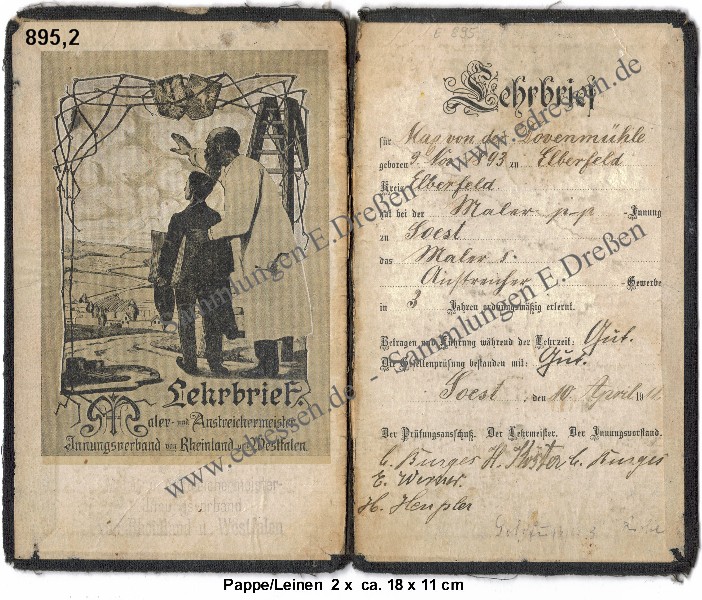 895,2
Lehrbrief.
Maler- und Anstreichermeister
Innungsverband von Rheinland und Westfalen
-meister-
-verband
Rheinland u. Westfalen
E 895
Lehrbrief
für Max von der Dovenmühle
geboren 9. Nov. 1893 zu Elberfeld
Kreis Elberfeld
hat bei der Maler p-p -Innung
zu Soest
das Maler &
Anstreicher -Gewerbe
in 3 Jahren ordnungsmäßig erlernt.
Betragen und Führung während der Lehrzeit: Gut.
Die Gesellenprüfung bestanden mit: Gut.
Soest, den 10. April 19
Der Prüfungsausschuß. Der Lehrmeister. Der Innungsvorstand.
C. Burges H. Köster C. Burges
E. Werner
H.
www.edressen.de - Sammlungen E.Dreßen
www.edressen.de - Sammlungen E.Dreßen - www.edressen.de
Pappe/Leinen 2 x ca. 18 x 11 cm